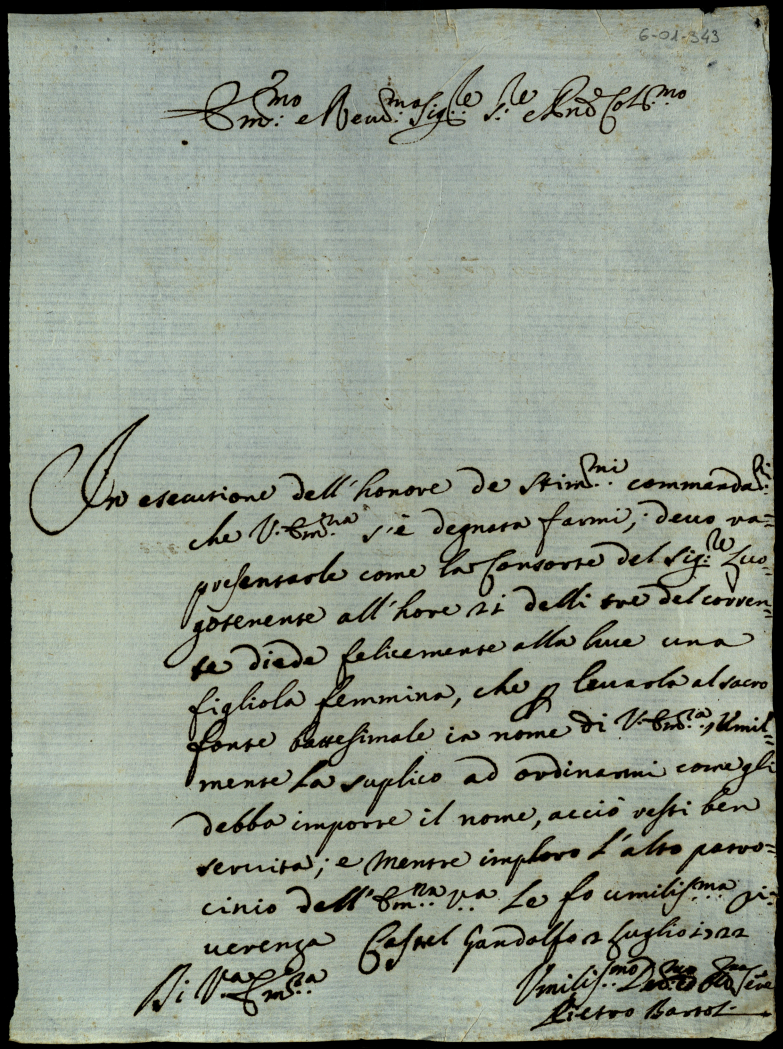 6-01-343
Em.mo e Reu.mo Sig.re S.re e Pnõ Col.mo
In esecutione dell'honore de Stim.mi commanda.ti
che V. Em.za s'è degnata farmi, deuo ra=
presentarle come la Consorte del Sig.re Luo=
gotenente all'hore 21 delli tre del corren=
te diede felicemente alla luce una
figliola femmina, che p leuarla al sacro
fonte battesimale in nome di V. Em.za, Umil=
mente La suplico ad ordinarmi come gli
debba imporre il nome, acciò resti ben
seruita; e mentre imploro l'alto patro=
cinio dell'Em.za V.a Le fo umilis.ma ri=
uerenza Castel Gandolfo Luglio 1722
Di V.a Em.za
Umilis.mo Deu.mo ed Obl.mo Ser.e
Pietro Bartol